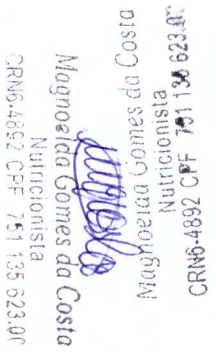 Magnoelda Gomes da Costa
Nutricionista
CRN6-4892 CPF 751 135 623.0
Magnoelda Gomes da Costa
Nutricionista
CRN6-4892 CPF 751 135 623.0